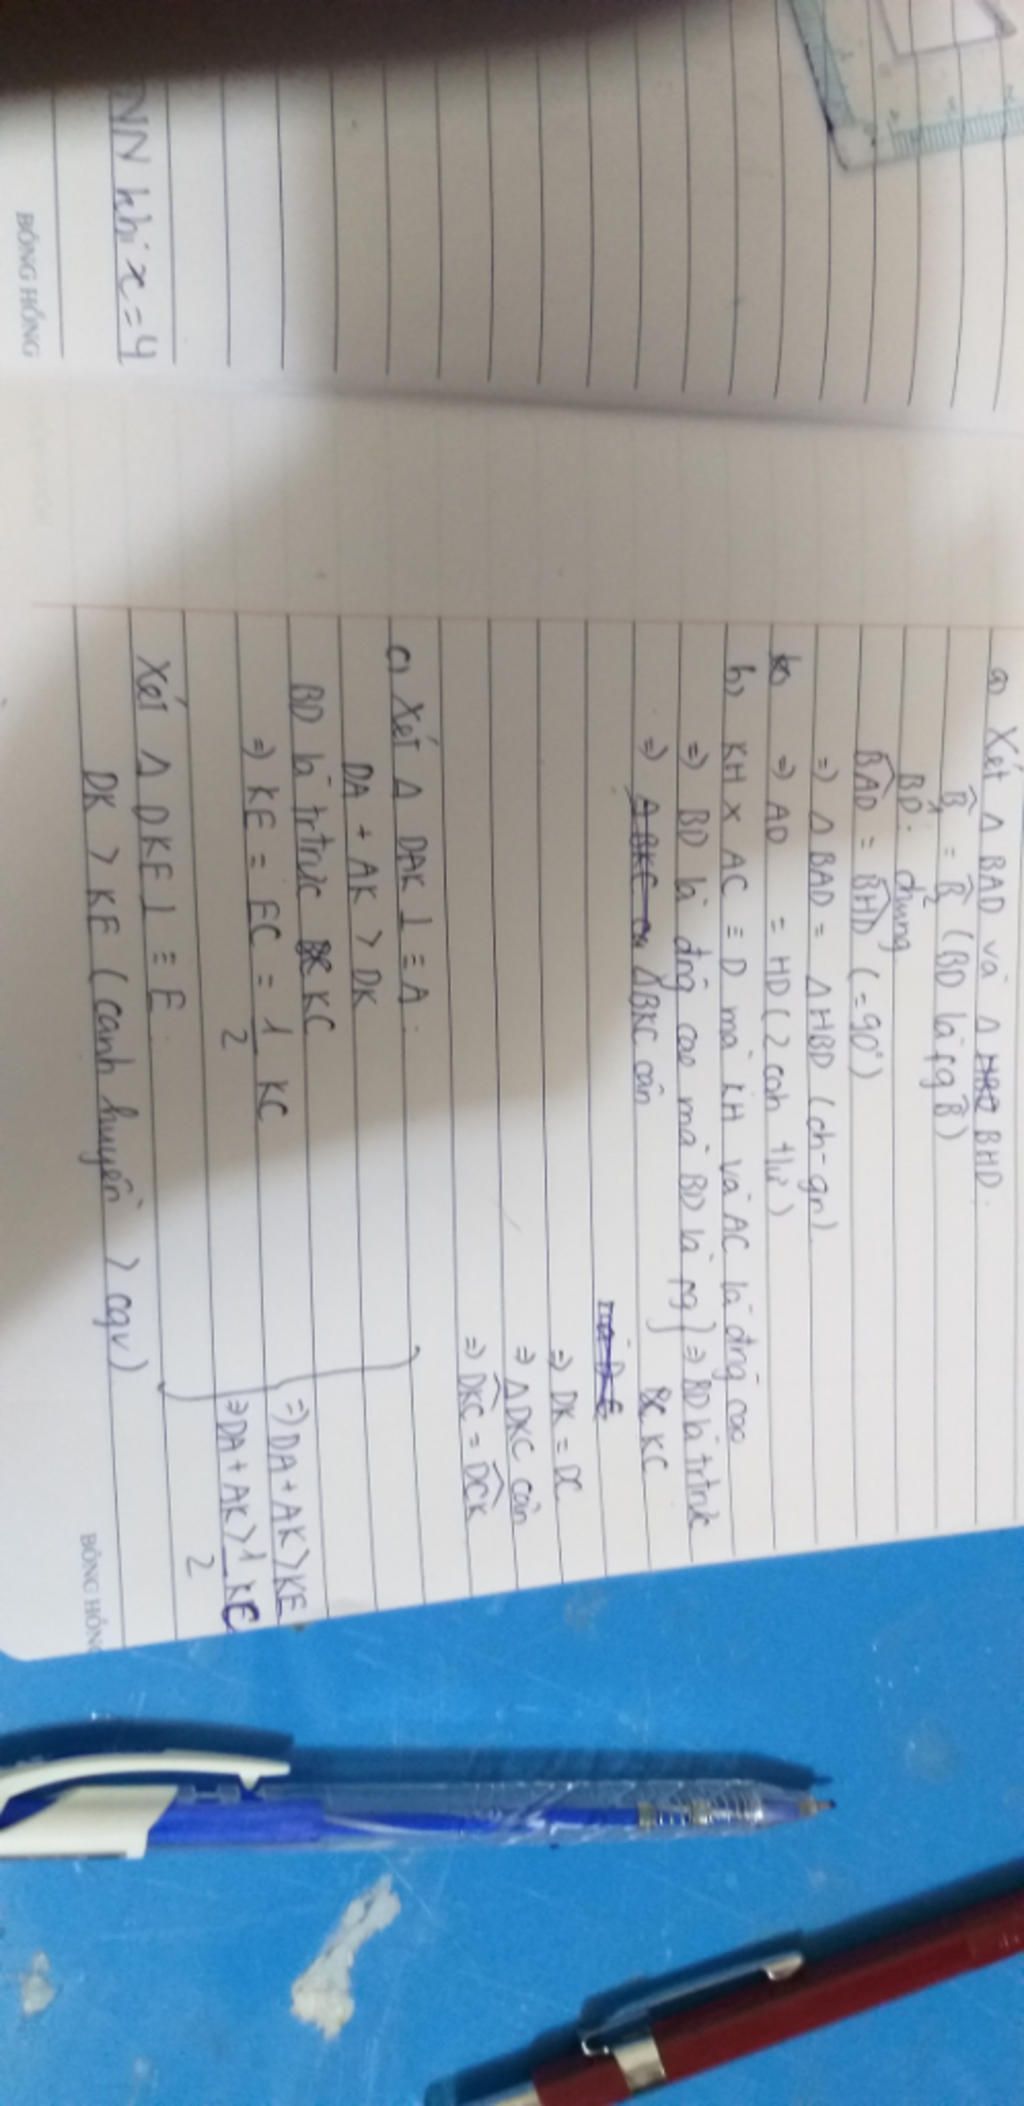 NN khi x = 4
BÓNG HỒNG
a) Xét Δ BAD và Δ BHD.
B̂₁ = B̂₂ (BD là pg B̂)
BD: chung
BAD = BHD (= 90°)
=> Δ BAD = Δ HBD (ch - gn).
=> AD = HD (2 cah tlư)
b) KH x AC ≡ D mà KH và AC là đng cao
=> BD là đng cao mà BD là pg } => BD là trtrưc
=> Δ BKC cân KC
=> DK = DC
=> Δ DKC cân
=> DKC = DCK
c) Xét Δ DAK ⊥ ≡ A.
DA + AK > DK
BD là trtrưc KC
=> KE = EC = 1/2 KC
=> DA + AK > KE
=> DA + AK > 1/2 KC
Xét Δ DKE ⊥ ≡ E.
DK > KE (cạnh huyền > cgv)
BÓNG HỒNG